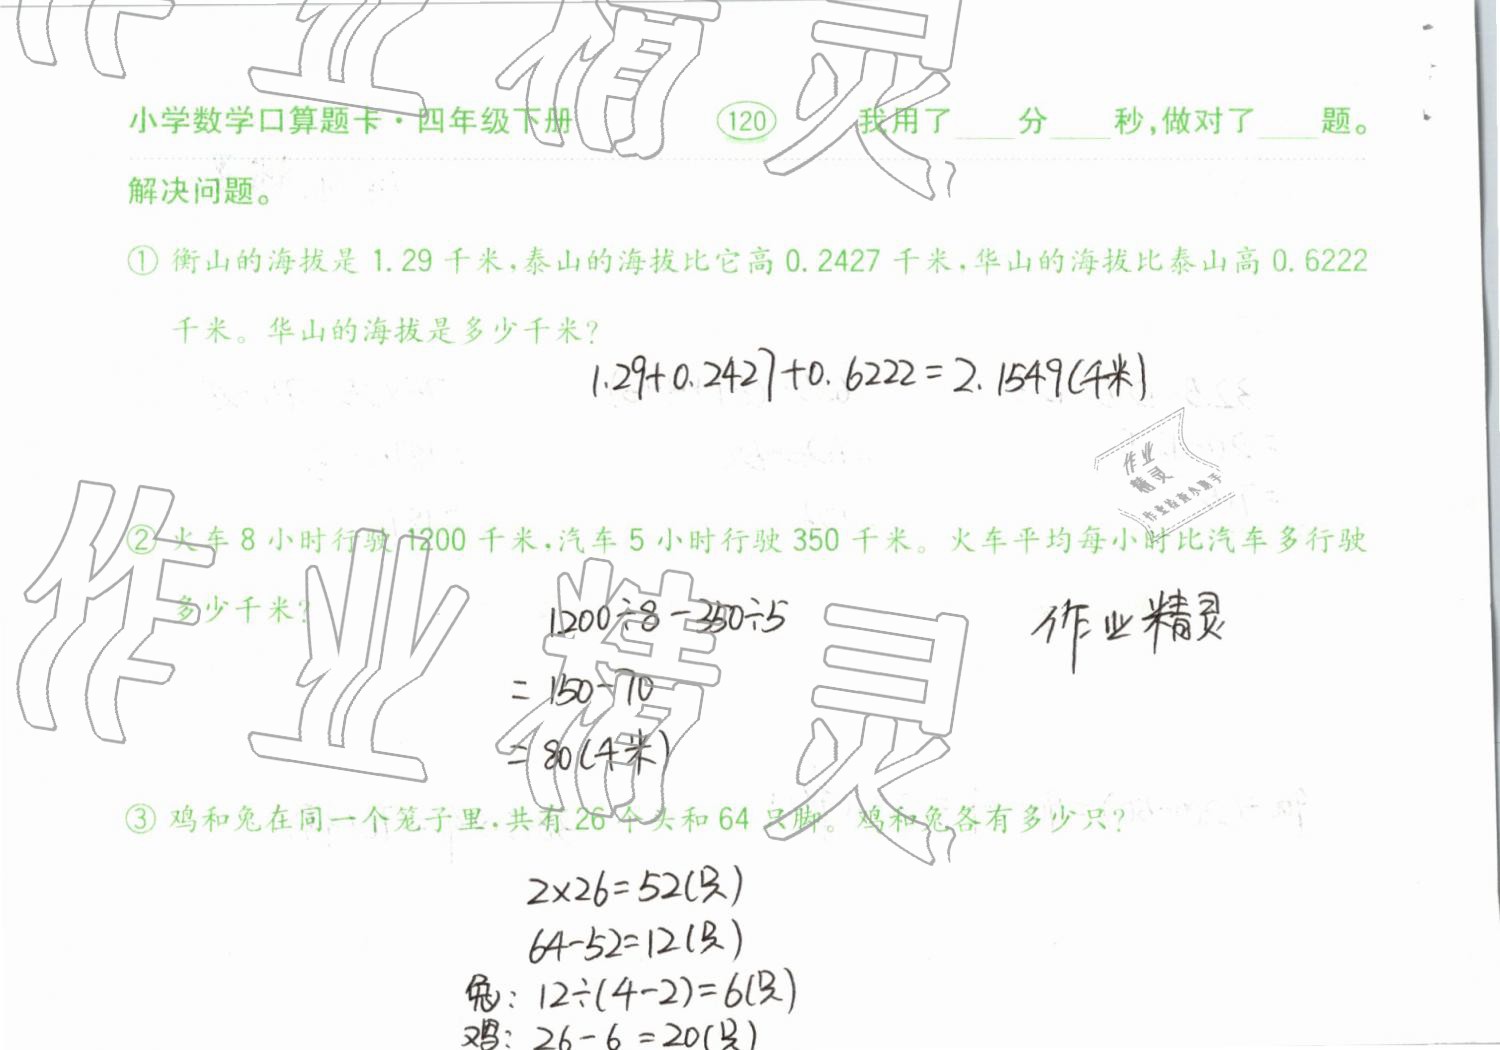 小学数学口算题卡·四年级下册 120 我用了____分____秒,做对了____题。
解决问题。
① 衡山的海拔是 1.29 千米,泰山的海拔比它高 0.2427 千米,华山的海拔比泰山高 0.6222
千米。华山的海拔是多少千米?
1.29+0.2427+0.6222=2.1549(千米)
作业
精灵
作业检查小助手
② 火车 8 小时行驶 1200 千米,汽车 5 小时行驶 350 千米。火车平均每小时比汽车多行驶
多少千米?
1200÷8-350÷5
作业精灵
=150-70
=80(千米)
③ 鸡和兔在同一个笼子里,共有 26 个头和 64 只脚。鸡和兔各有多少只?
2×26=52(只)
64-52=12(只)
兔: 12÷(4-2)=6(只)
鸡: 26-6=20(只)
作业精灵
作业精灵